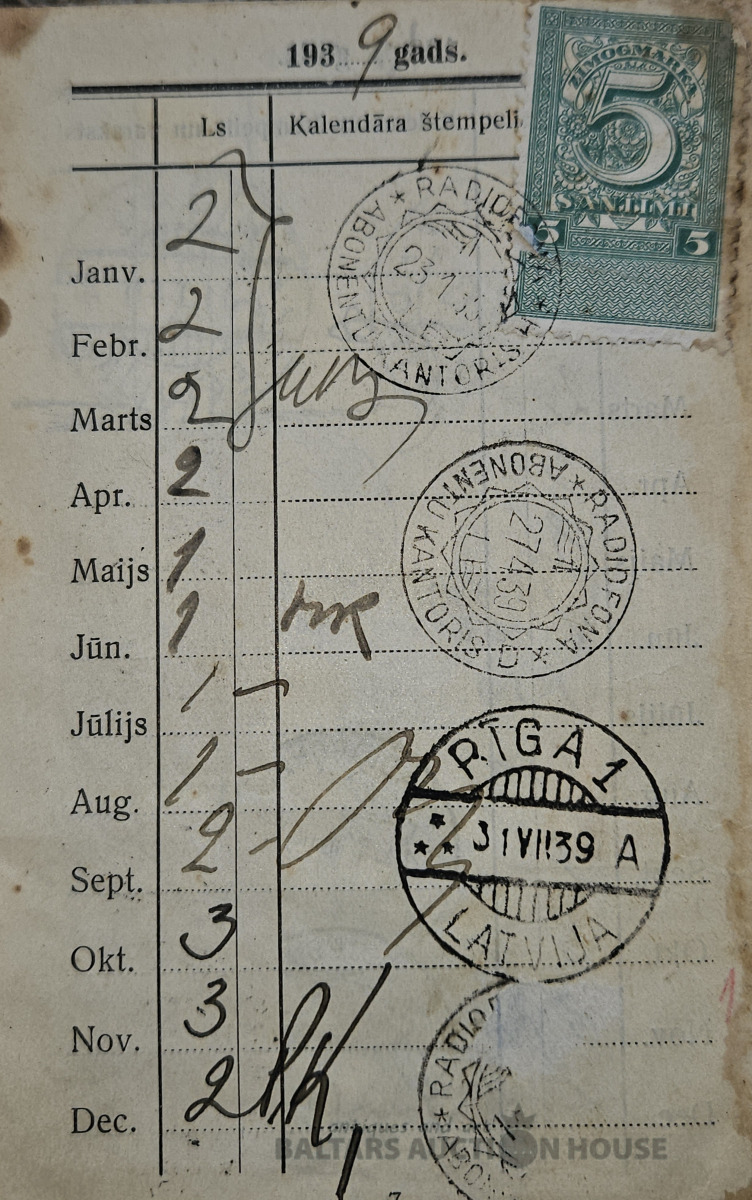 1939 gads.
Ls Kalendāra štempeli
ZĪMOGMARKA
5
SANTIMI
5 5
Janv. 2
★ RADIOFONA ★ ABONENTU KANTORIS
23 1 39
Febr. 2
Marts 2
Apr. 2
★ RADIOFONA ★ ABONENTU KANTORIS D
27 4 39
Maijs 1
Jūn. 1
Jūlijs 1 -
RĪGA 1
Aug. 1 -
31 VII 39 A
Sept. 2 -
LATVIJA
Okt. 3
Nov. 3
★ RADIOF
Dec. 2
BALTARS AUCTION HOUSE
7